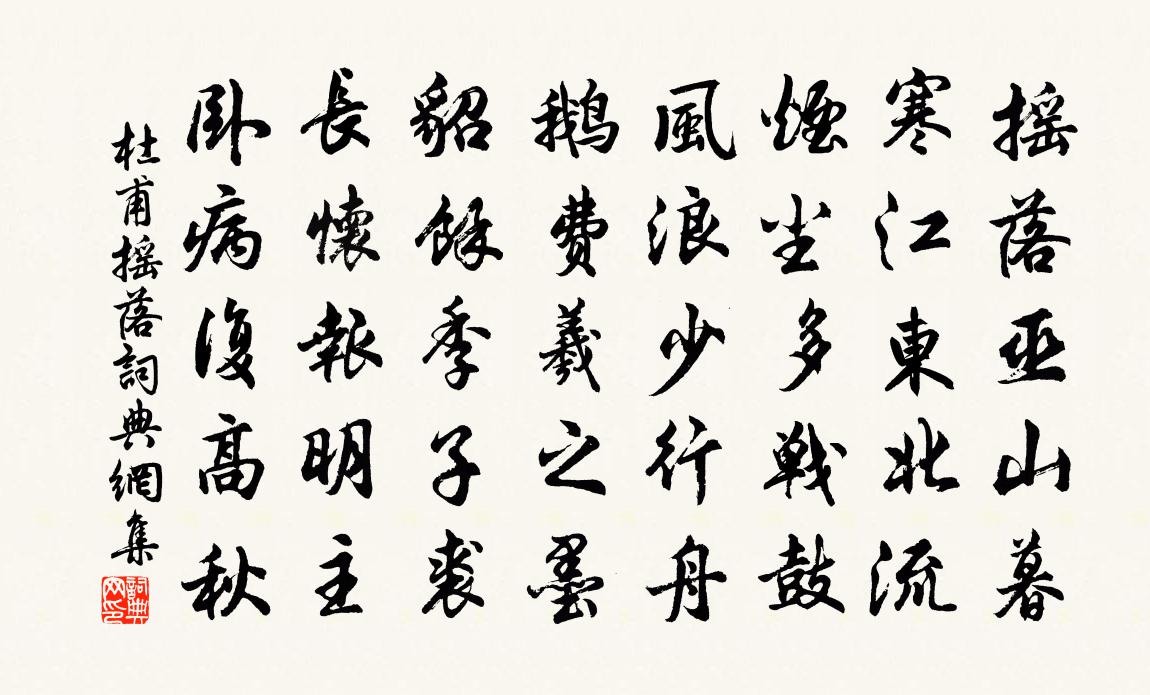 搖落巫山暮
寒江東北流
煙塵多戰鼓
風浪少行舟
鵝費羲之墨
貂餘季子裘
長懷報明主
臥病復高秋
杜甫搖落詞典網集
詞典網印